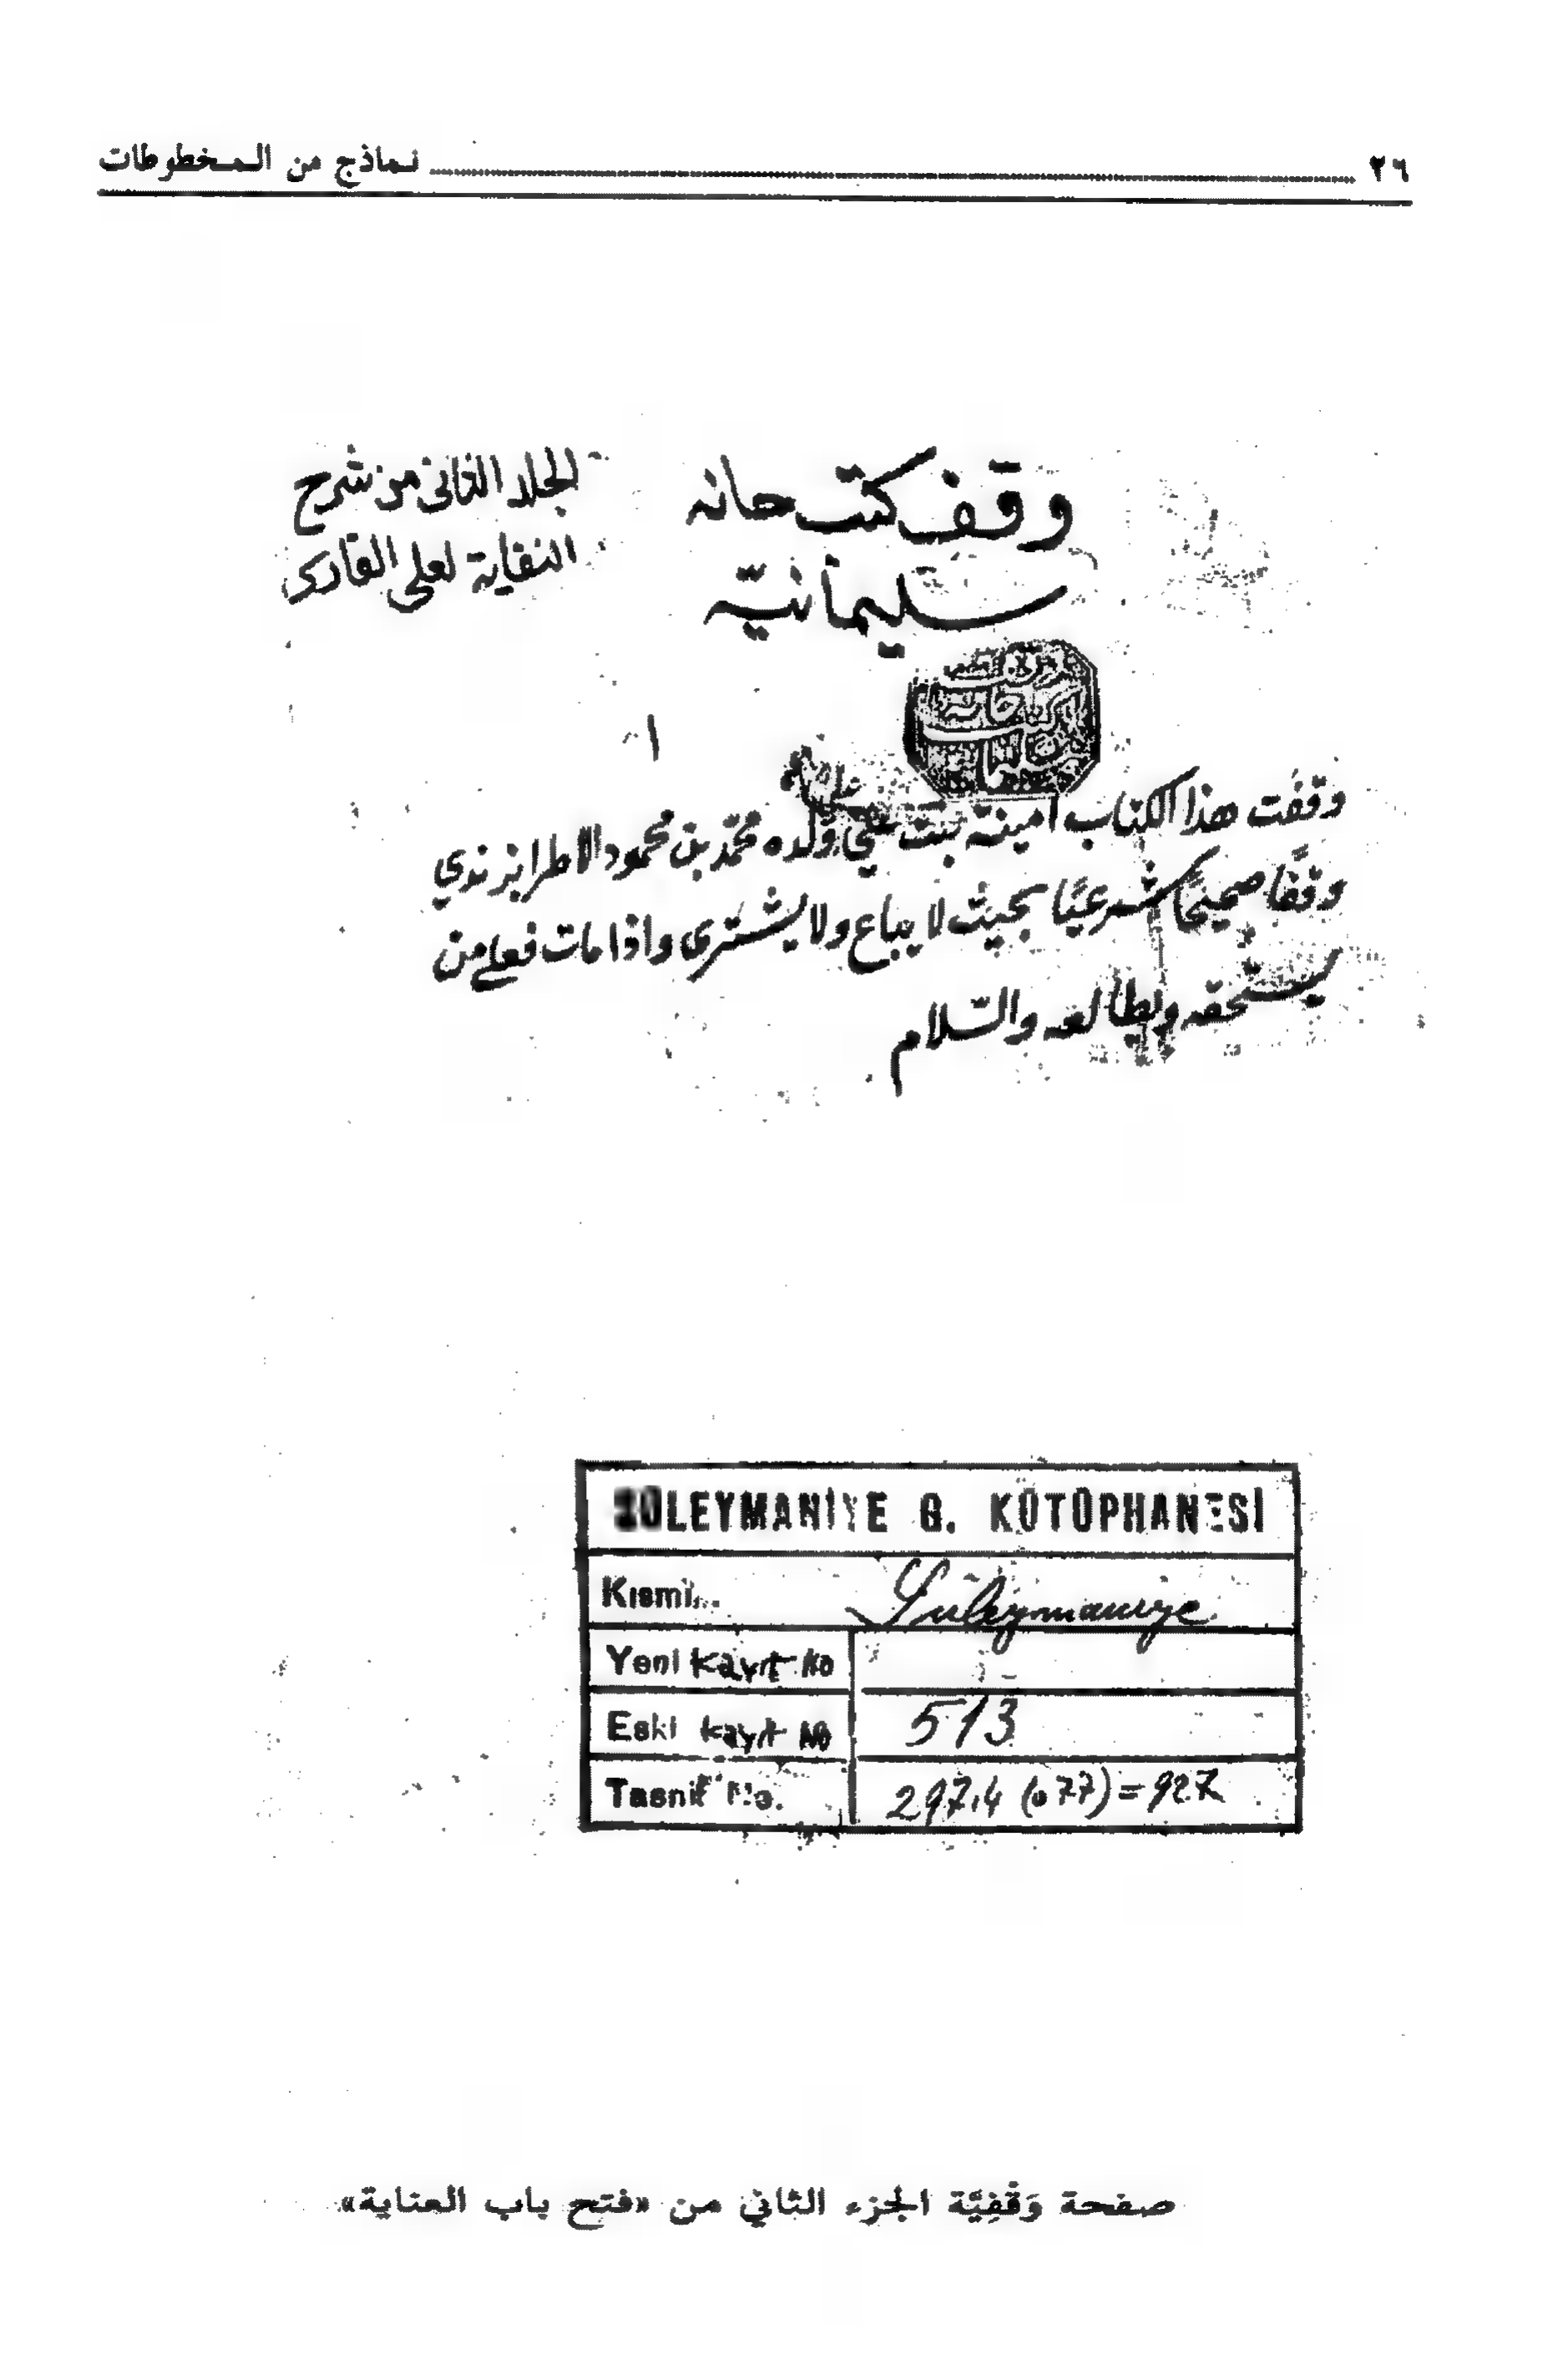 ٢٦ نماذج من المخطوطات
وقف كتب حانه
سليمانيّه
الجلد الثانى من شرح
النقاية لعلى القارى
١
وقفت هذا الكتاب امينة بنت علي ولده محمّد بن محمود الاطرابزندي
وقفًا صحيحًا شرعيًا بحيث لا يباع ولا يشترى واذا مات فعلى من
يستحقه ويطالعه والسّلام
SÜLEYMANİYE G. KÜTÜPHANESİ
Kısmı Süleymaniye
Yeni Kayıt No
Eski kayıt No 513
Tasnif No. 297.4 (077)=927
صفحة وَقْفِيَّة الجزء الثاني من «فتح باب العناية».